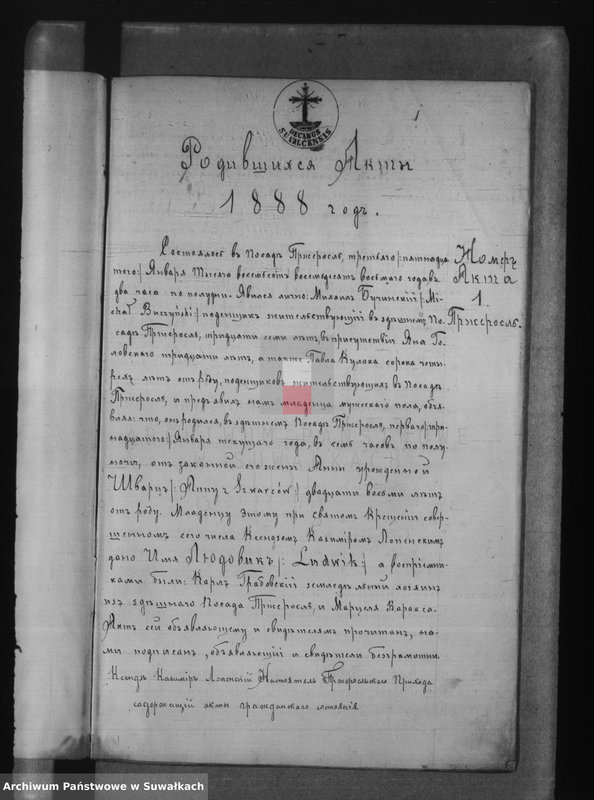 DECANUS
SUVALCENSIS
1
Родившихся Акты
1888 годъ.
Номеръ
Акта
1.
Пржеросль.
Состоялось въ Посадѣ Пржеросль, третьяго /: пятнадца
таго :/ Января Тысяча восемьсотъ восемьдесятъ восьмаго года въ
два часа по полудни. Явился лично: Михаилъ Бучинскій /: Mi-
chał Buczyński :/ поденщикъ жительствующій въ здѣшнемъ По-
садѣ Пржеросль, тридцати семи лѣтъ, въ присутствіи Яна Го-
ловскаго тридцати лѣтъ, а также Павла Кулока сорока четы-
рехъ лѣтъ отъ роду, поденщиковъ жительствующихъ въ Посадѣ
Пржеросль, и предъявилъ намъ младенца мужескаго пола, объя-
вляя: что, онъ родился, въ здѣшнемъ Посадѣ Пржеросль, перваго /: три-
надцатаго :/ Января текущаго года, въ семь часовъ по полу-
ночи, отъ законной его жены Анны урожденной
Шварцъ /: Anny z Szwarców :/ двадцати восьми лѣтъ
отъ роду. Младенцу этому при святомъ Крещеніи совер-
шенномъ сего числа Ксендзомъ Казиміромъ Лопенскимъ
дано Имя Людовикъ /: Ludwik :/ а воспріемни-
ками были: Карлъ Грабовскій земледѣльный хозяинъ
изъ здѣшняго Посада Пржеросль, и Марцеля Варакса.
Актъ сей объявляющему и свидѣтелямъ прочитанъ, на-
ми подписанъ, объявляющій и свидѣтели безграмотны.
Ксендзъ Казиміръ Лопенскій Настоятель Пржеросльскаго Прихода
содержащій акты гражданскаго состоянія.
Archiwum Państwowe w Suwałkach